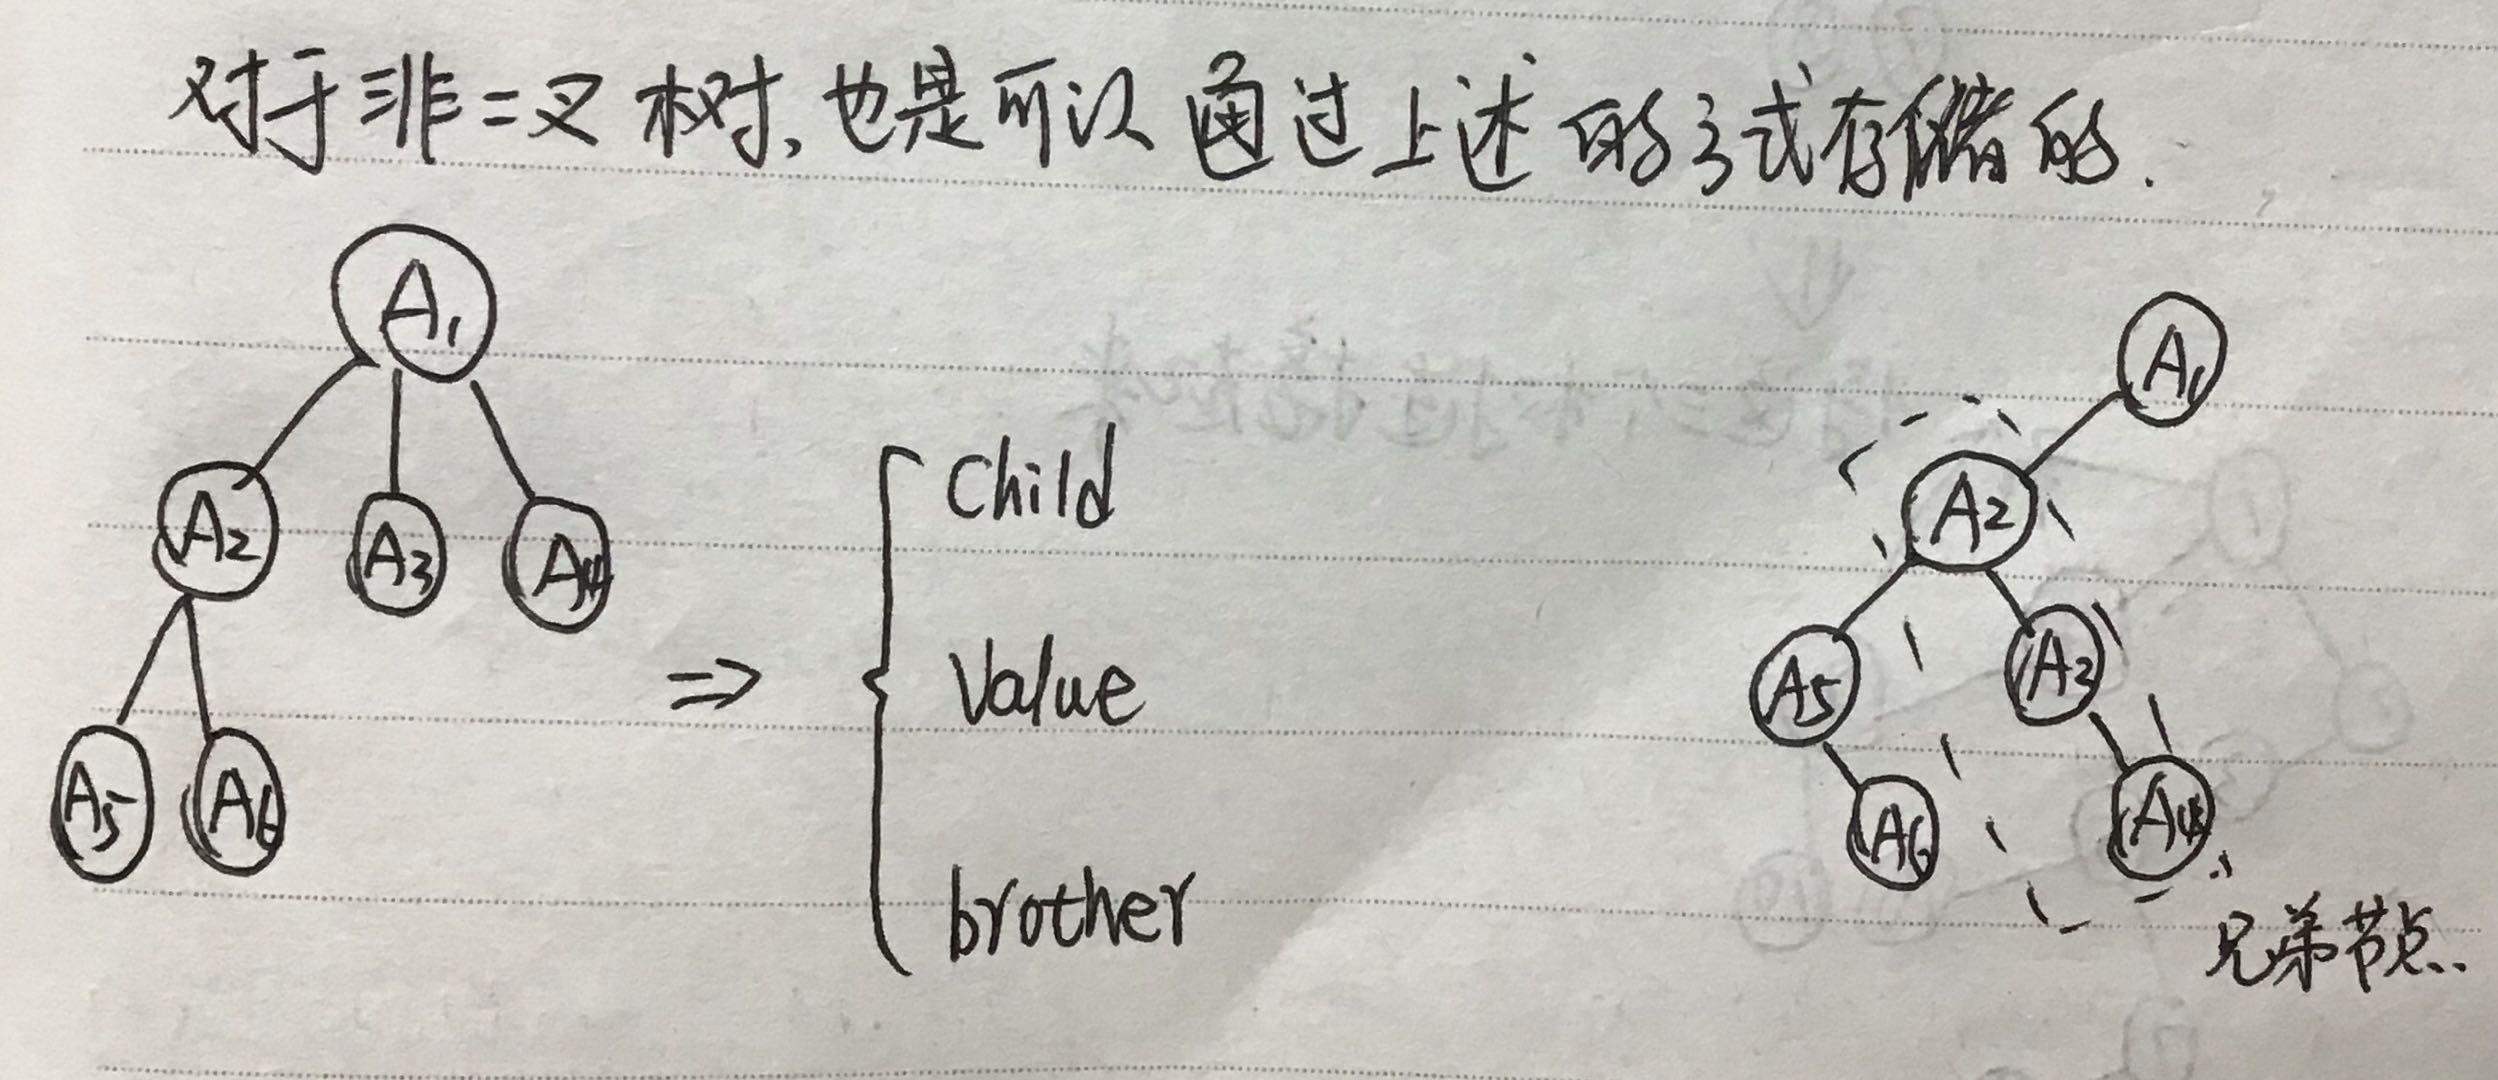 对于非二叉树,也是可以通过上述的方式存储的.
A1
A2 A3 A4
A5 A6
⇒
Child
Value
brother
A1
A2
A5 A3
A6 A4
兄弟节点.